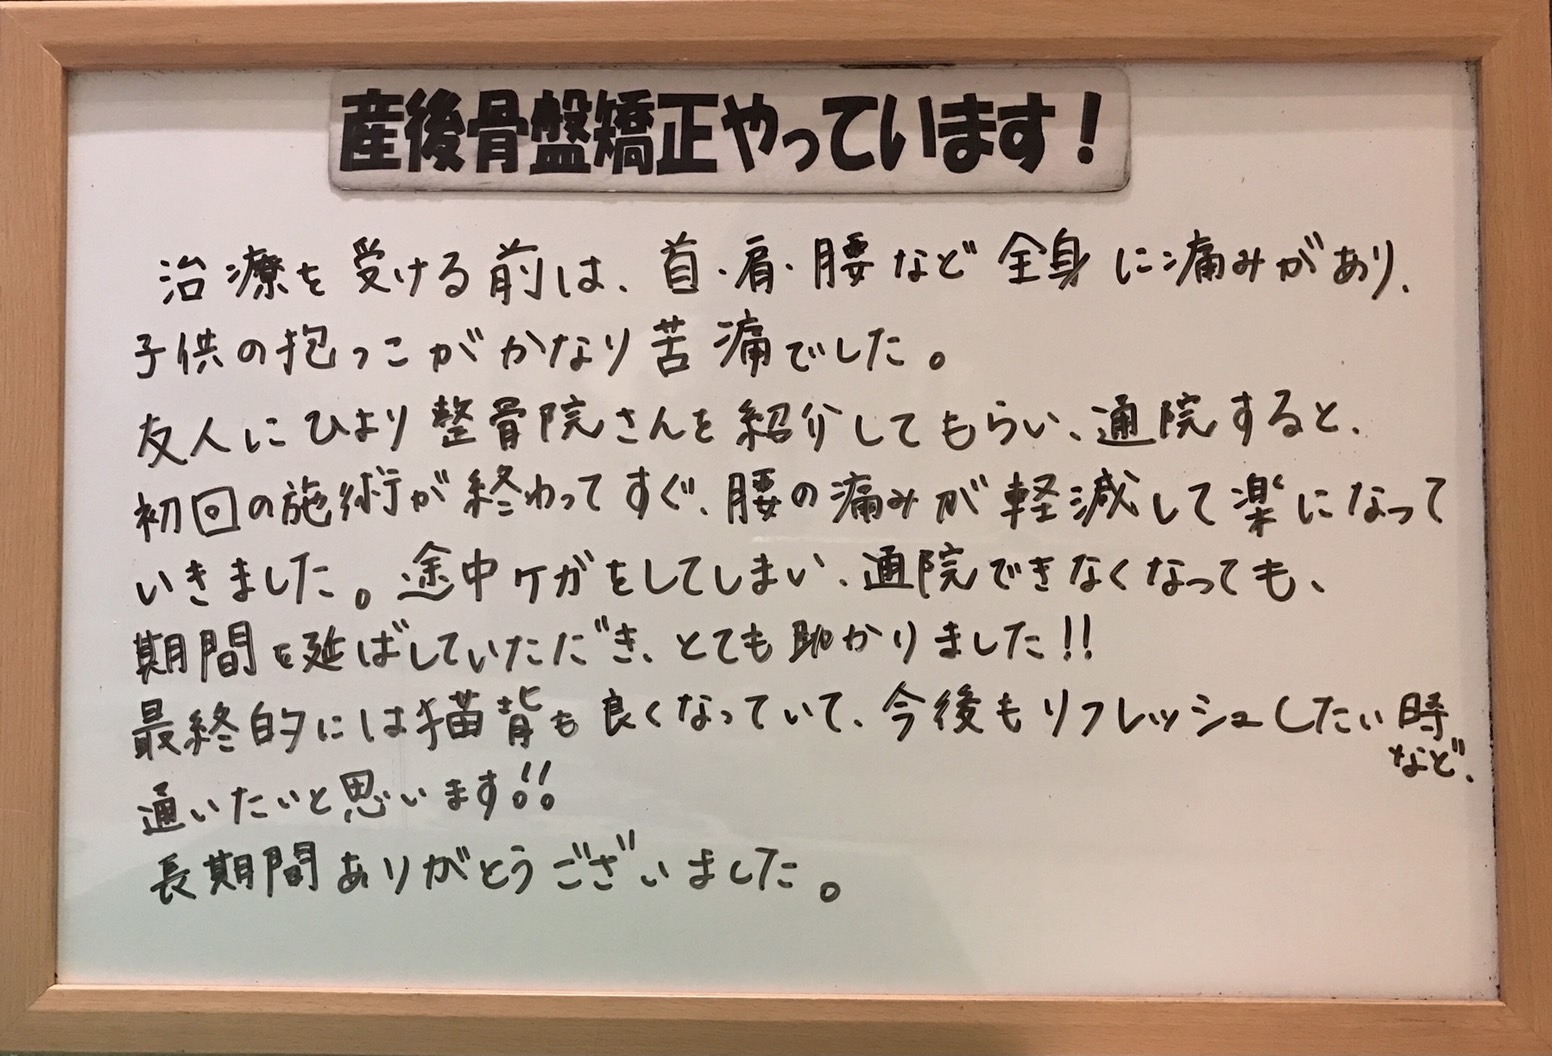 産後骨盤矯正やっています！
治療を受ける前は、首・肩・腰など全身に痛みがあり、
子供の抱っこがかなり苦痛でした。
友人にひより整骨院さんを紹介してもらい、通院すると、
初回の施術が終わってすぐ、腰の痛みが軽減して楽になって
いきました。途中ケガをしてしまい、通院できなくなっても、
期間を延ばしていただき、とても助かりました!!
最終的には猫背も良くなっていて、今後もリフレッシュしたい時
など、
通いたいと思います!!
長期間ありがとうございました。